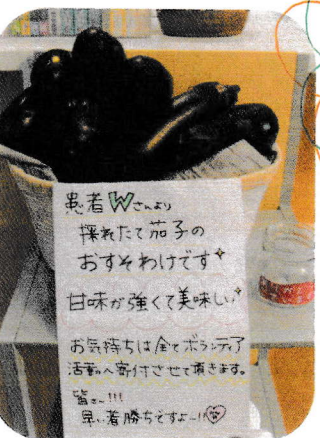 患者Wさんより
採れたて茄子の
おすそわけです
甘味が強くて美味しい
お気持ちは全てボランティア
活動へ寄付させて頂きます。
皆さ〜ん!!!
早い者勝ちですよ〜!!